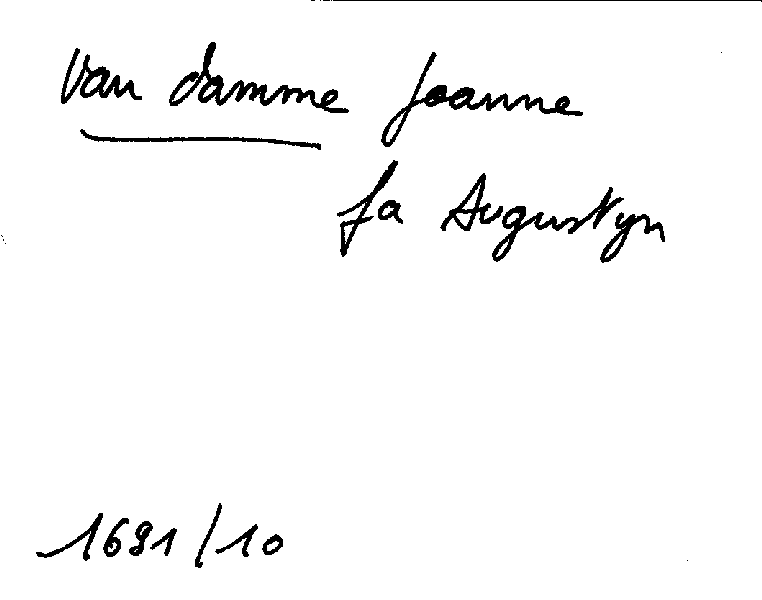 van damme Joanne
fa Augustyn
1691/10